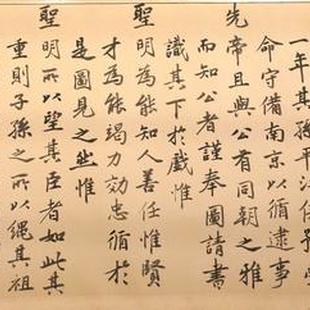 一年其孫平江伯
命守備南京以循逮事
先帝且與公有同朝之雅
而知公者謹奉圖請書
識其下於戲惟
聖明為能知人善任惟賢
才為能竭力效忠循於
是圖見之惟
聖明所以望其臣者如此其
重則子孫之所以繩其祖